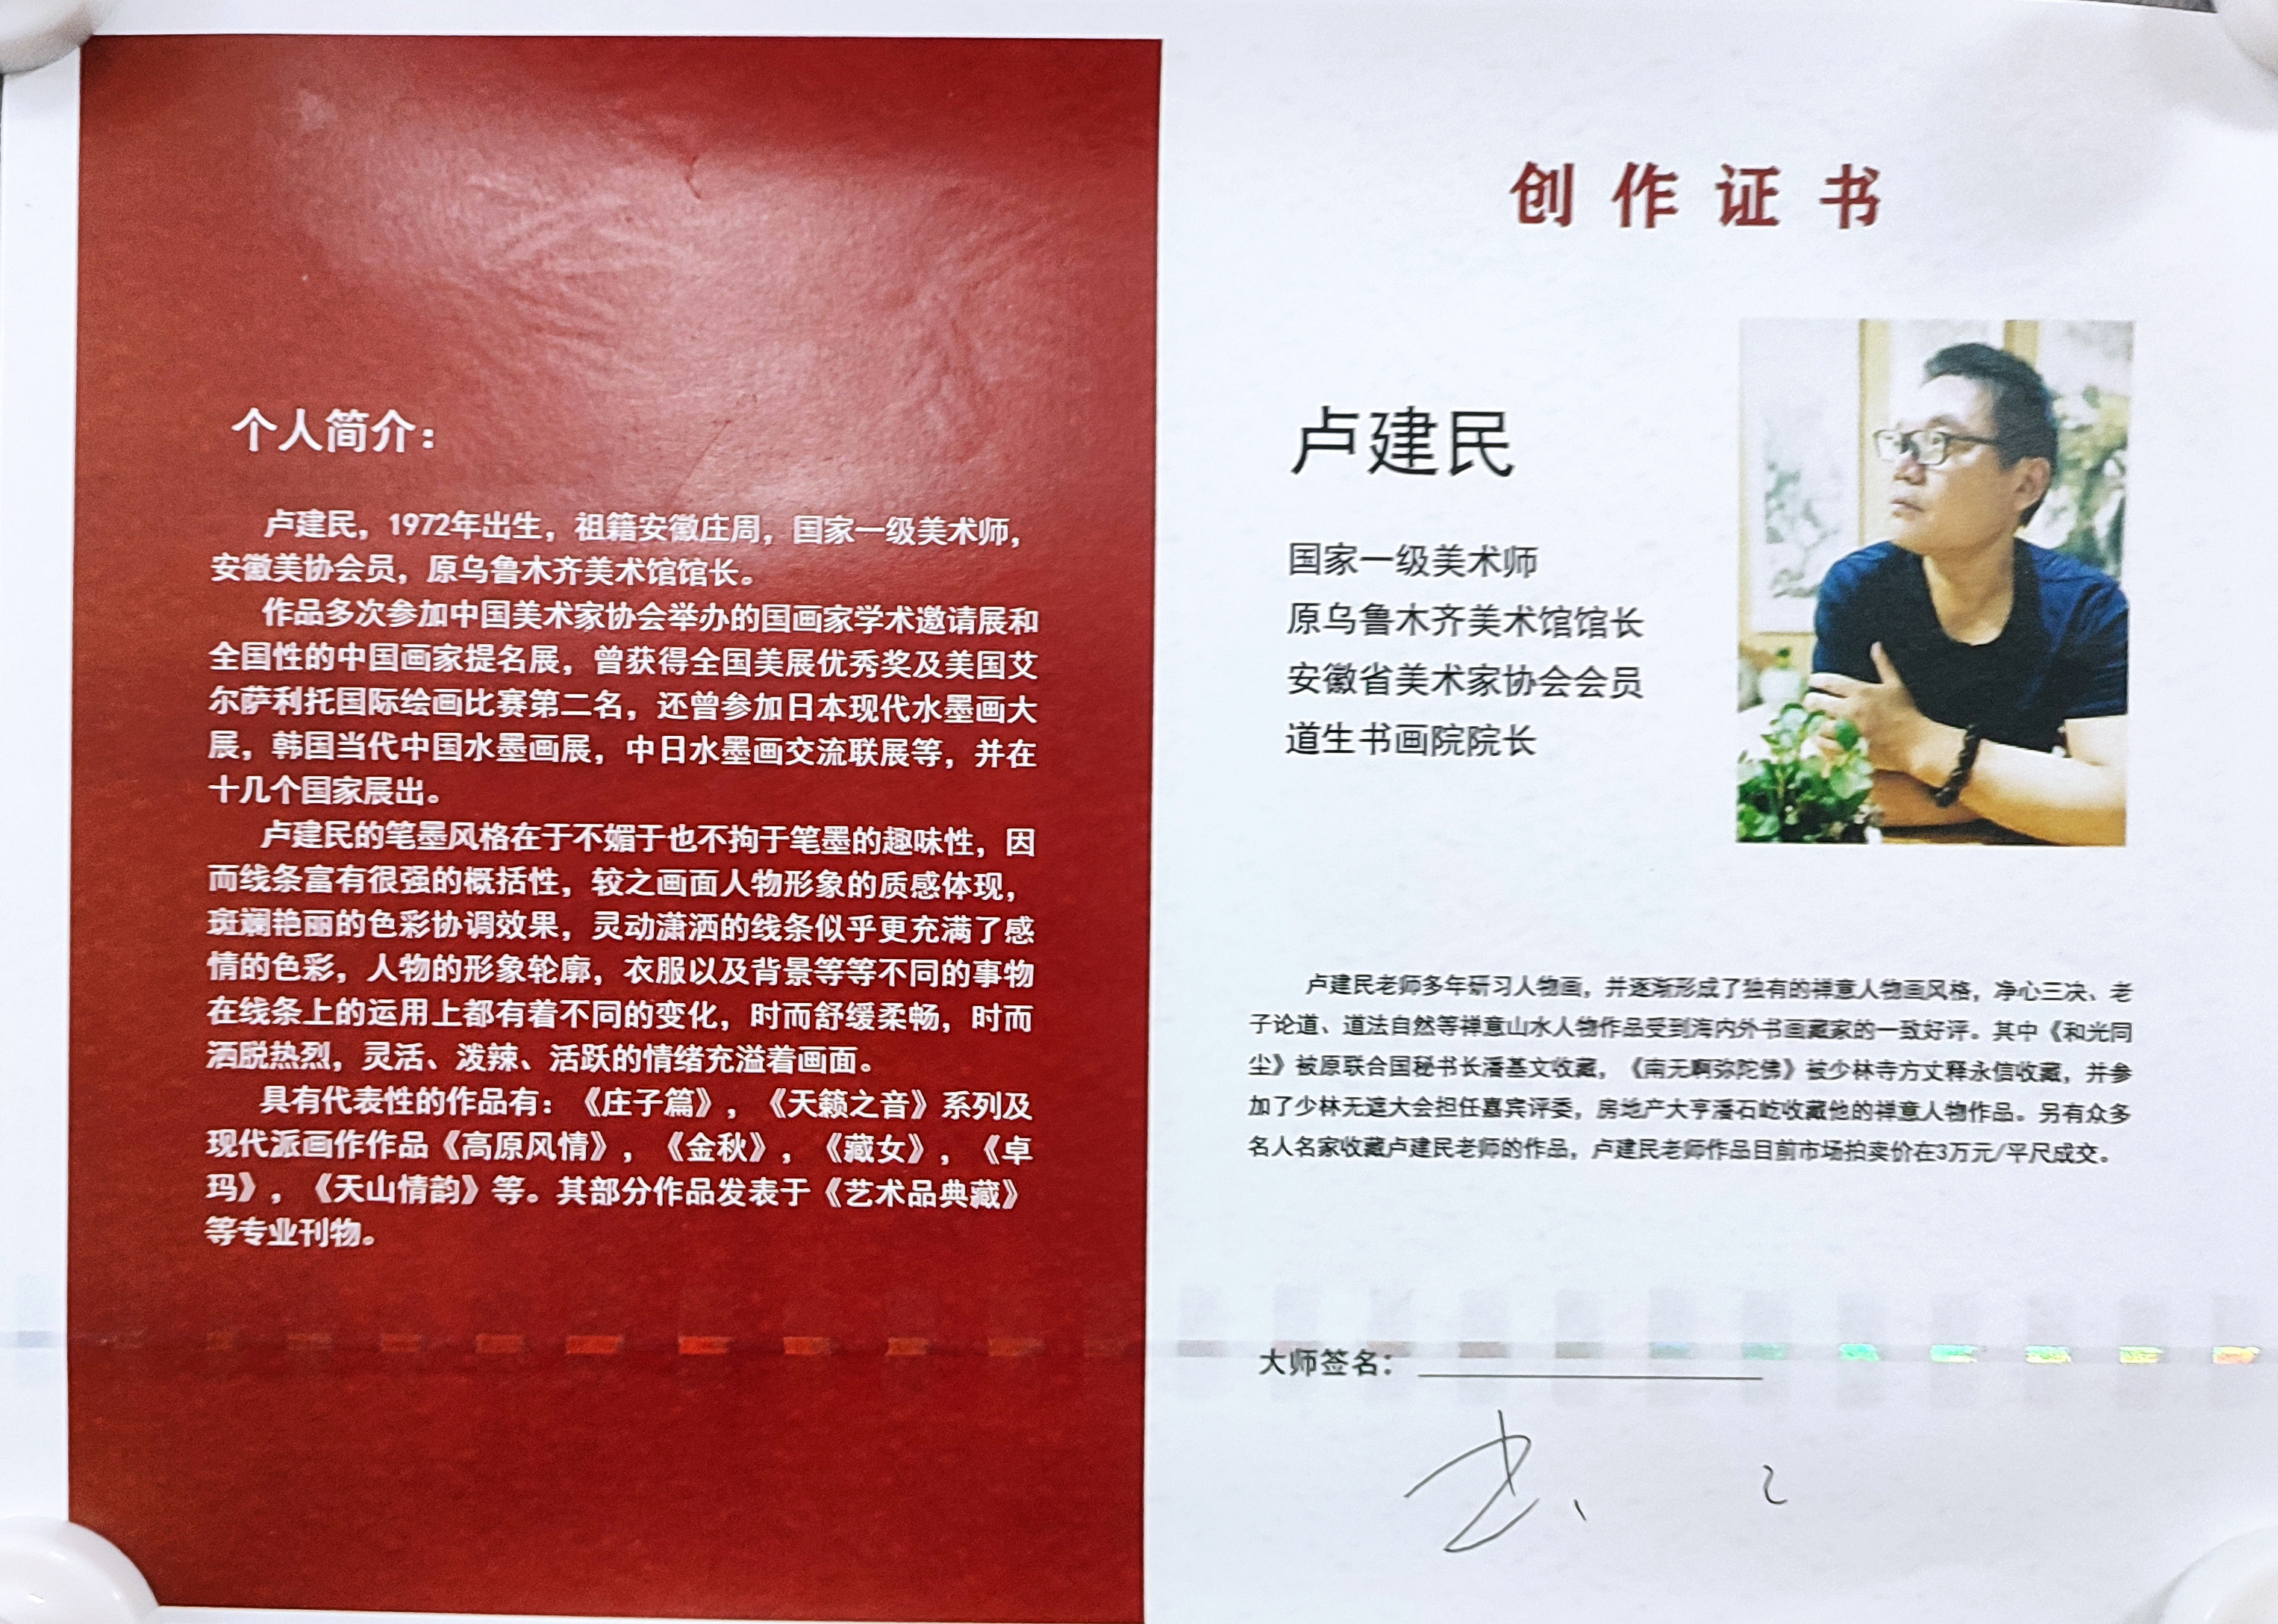 个人简介：
卢建民，1972年出生，祖籍安徽庄周，国家一级美术师，
安徽美协会员，原乌鲁木齐美术馆馆长。
作品多次参加中国美术家协会举办的国画家学术邀请展和
全国性的中国画家提名展，曾获得全国美展优秀奖及美国艾
尔萨利托国际绘画比赛第二名，还曾参加日本现代水墨画大
展，韩国当代中国水墨画展，中日水墨画交流联展等，并在
十几个国家展出。
卢建民的笔墨风格在于不媚于也不拘于笔墨的趣味性，因
而线条富有很强的概括性，较之画面人物形象的质感体现，
斑斓艳丽的色彩协调效果，灵动潇洒的线条似乎更充满了感
情的色彩，人物的形象轮廓，衣服以及背景等等不同的事物
在线条上的运用上都有着不同的变化，时而舒缓柔畅，时而
洒脱热烈，灵活、泼辣、活跃的情绪充溢着画面。
具有代表性的作品有：《庄子篇》，《天籁之音》系列及
现代派画作作品《高原风情》，《金秋》，《藏女》，《卓
玛》，《天山情韵》等。其部分作品发表于《艺术品典藏》
等专业刊物。
创作证书
卢建民
国家一级美术师
原乌鲁木齐美术馆馆长
安徽省美术家协会会员
道生书画院院长
卢建民老师多年研习人物画，并逐渐形成了独有的禅意人物画风格，净心三决、老
子论道、道法自然等禅意山水人物作品受到海内外书画藏家的一致好评。其中《和光同
尘》被原联合国秘书长潘基文收藏，《南无啊弥陀佛》被少林寺方丈释永信收藏，并参
加了少林无遮大会担任嘉宾评委，房地产大亨潘石屹收藏他的禅意人物作品。另有众多
名人名家收藏卢建民老师的作品，卢建民老师作品目前市场拍卖价在3万元/平尺成交。
大师签名：